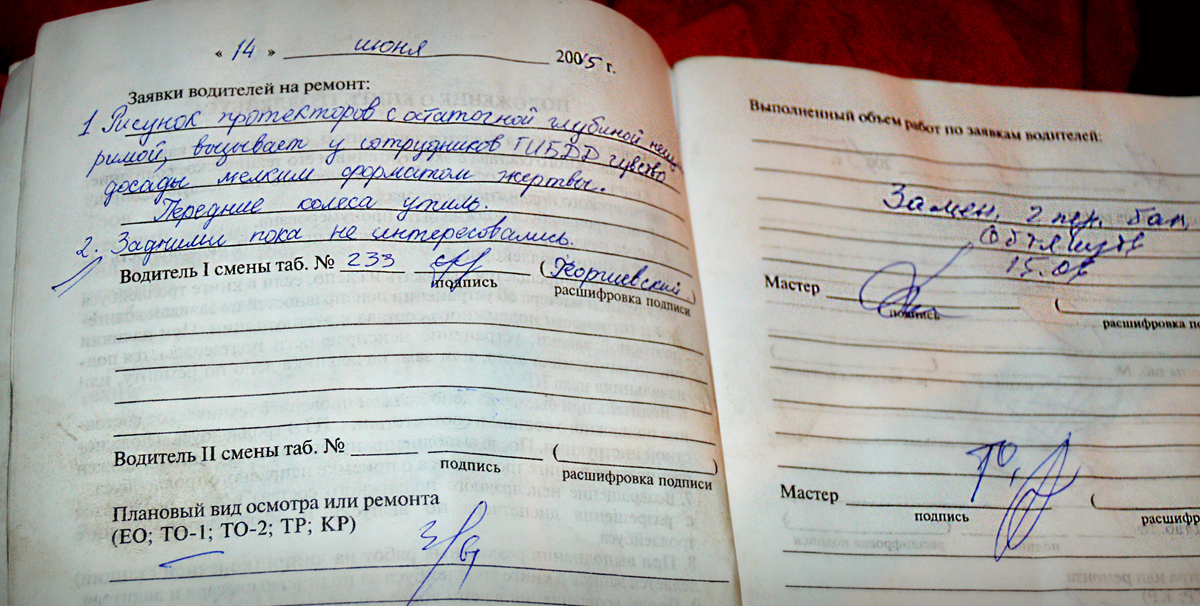 « 14 » июня 2005 г.
Заявки водителей на ремонт:
1 Рисунок протекторов с остаточной глубиной нещ
римой, вызывает у сотрудников ГИБДД чувство
досады мелким форматом жертвы.
Передние колеса утиль.
2. Задними пока не интересовались.
Водитель I смены таб. № 233 ( )
подпись расшифровка подписи
Водитель II смены таб. № ( )
подпись расшифровка подписи
Плановый вид осмотра или ремонта
(ЕО; ТО-1; ТО-2; ТР; КР)
Выполненный объем работ по заявкам водителей:
Замен. 2 пер. бал.
15.06
Мастер (
подпись расшифровка п
ТО,
Мастер (
подпись расшифр